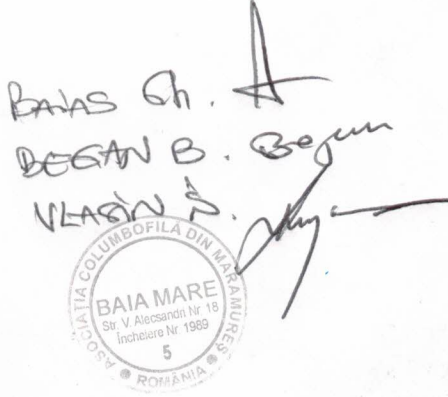 BAIAS Gh.
BEGAN B. Began
VLASIN S.
ASOCIAȚIA COLUMBOFILĂ DIN MARAMUREȘ
BAIA MARE
Str. V. Alecsandri Nr 18
Încheiere Nr. 1989
5
ROMÂNIA